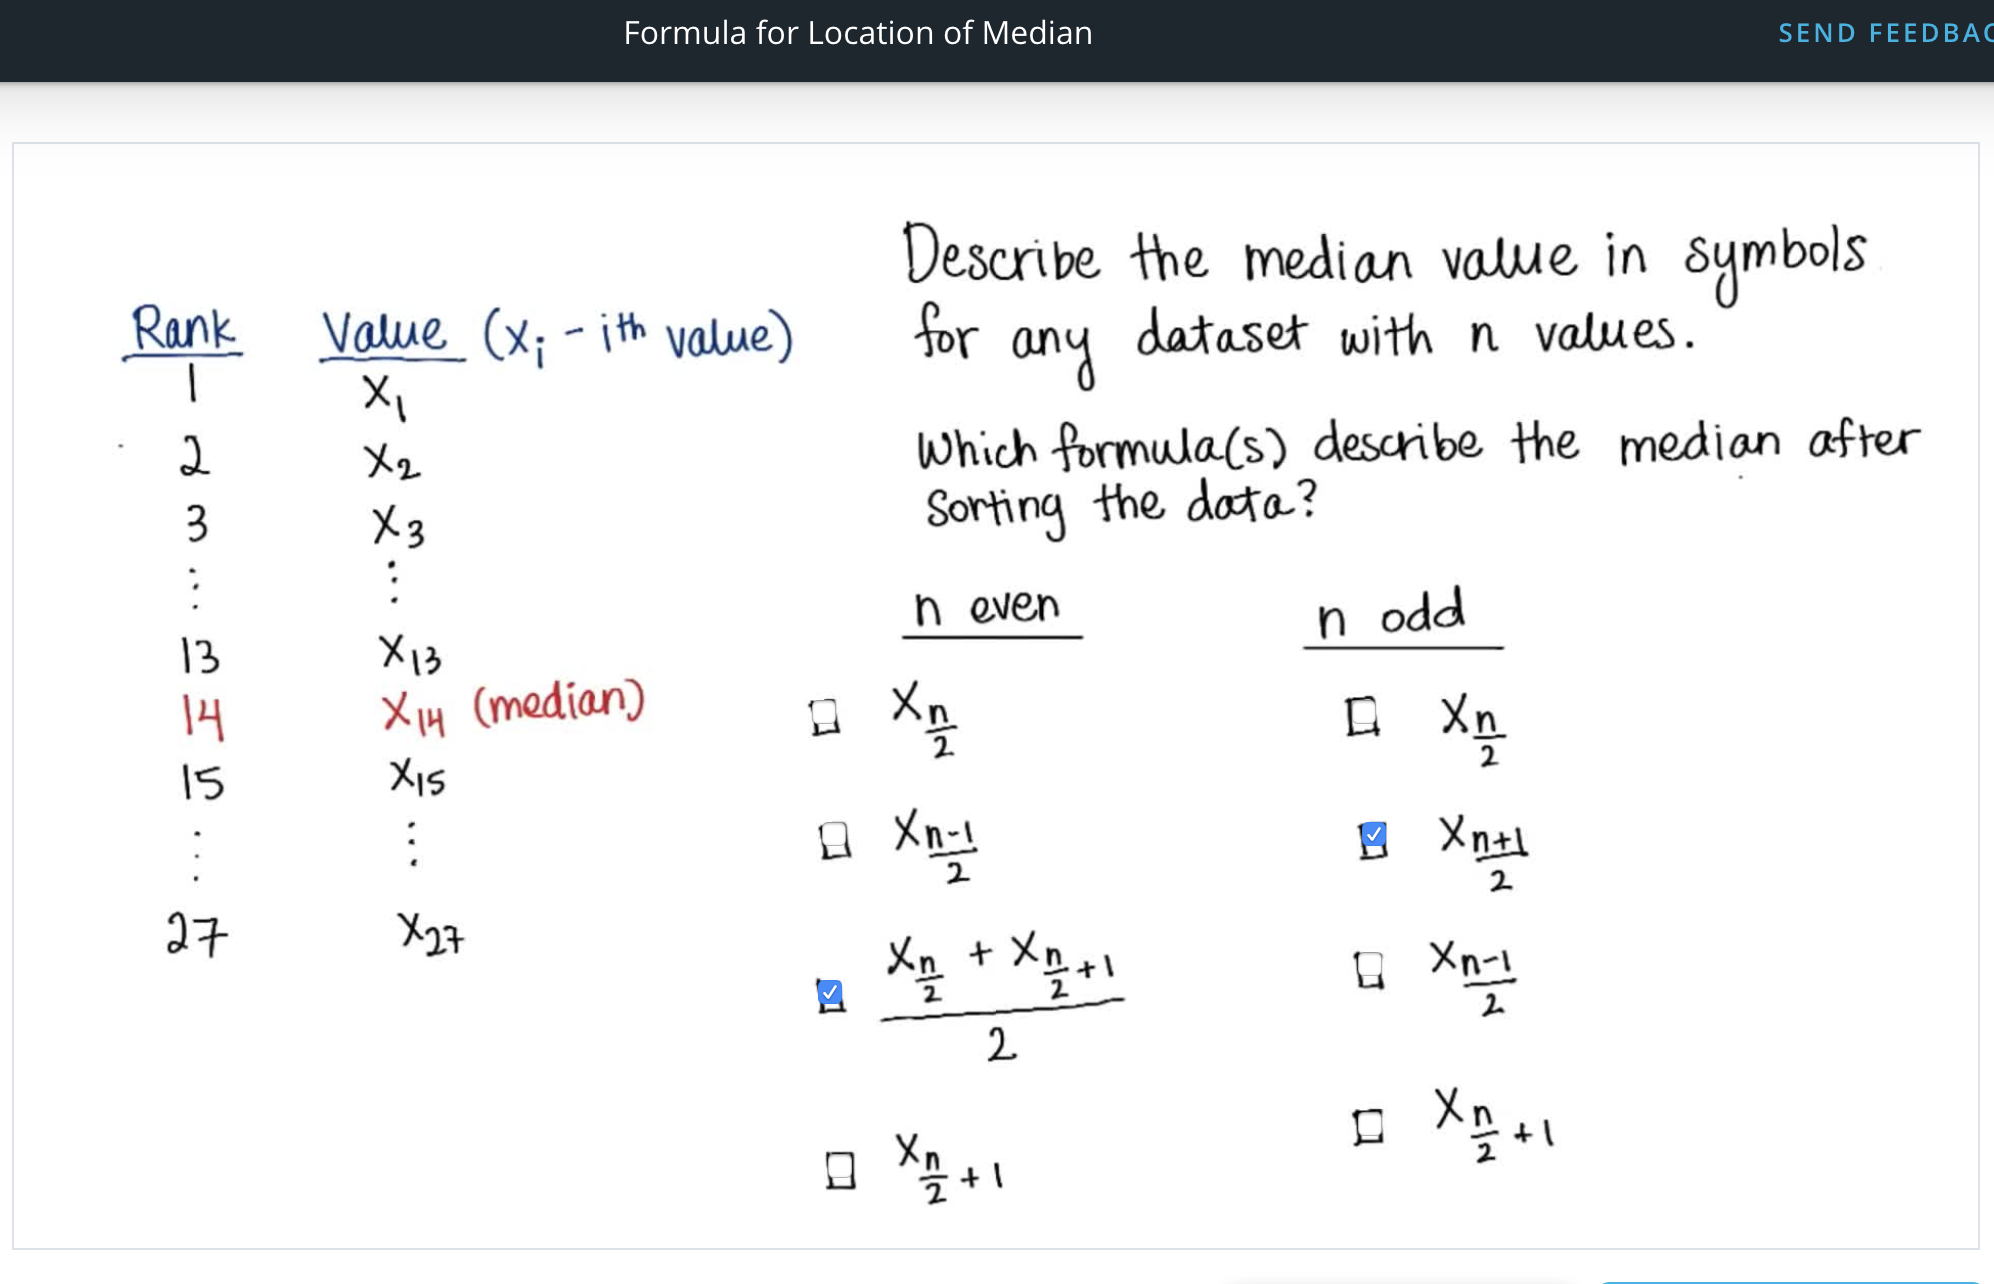 Formula for Location of Median
SEND FEEDBAC
Rank Value (xᵢ - ith value)
1 x₁
2 x₂
3 x₃
⋮ ⋮
13 x₁₃
14 x₁₄ (median)
15 x₁₅
⋮ ⋮
27 x₂₇
Describe the median value in symbols
for any dataset with n values.
Which formula(s) describe the median after
sorting the data?
n even
☐ x_{n/2}
☐ x_{(n-1)/2}
☑ (x_{n/2} + x_{n/2 + 1}) / 2
☐ x_{n/2 + 1}
n odd
☐ x_{n/2}
☑ x_{(n+1)/2}
☐ x_{(n-1)/2}
☐ x_{n/2 + 1}